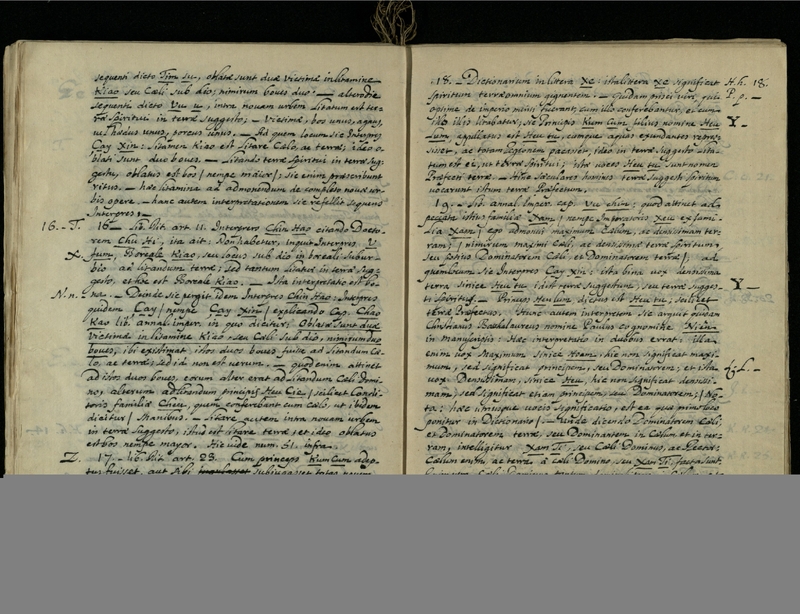 sequenti dicto Tim su, oblatæ sunt duæ victimæ in litamine
Kiao, seu Cæli sub dio; nimirum boves duo: — altero die
sequenti dicto Vu u, intra novam urbem litatum est ter-
ræ Spiritui in terræ suggesto; — victimæ, bos unus, agnus
unus, porcus unus. — Ad quem locum sic Interpres
Cay Xin: litamen Kiao est litare Cælo, ac terræ; ideo o-
blati sunt duo boves. — Litando terræ Spiritui in terræ sug-
gestu, oblatus est bos / nempe maior /; sic enim præscribunt
ritus. — hæc litamina ad admonendum de completo novæ ur-
bis opere. — hanc autem interpretationem sic refellit sequens
Interpres:
16. – T. 16 — Sic lit. art. 11. Interpres Chin Hao citando Docto-
rem Chu Hi, ita ait: Non habetur, inquit Interpres V
X. fum, Boreale Kiao, seu locus sub dio in boreali subur-
bio ad litandum terræ; sed tantum litatur in terræ sug-
gesto, et hoc est Boreale Kiao. — Ista interpretatio est bo-
N. n. na. — Deinde sic pergit idem Interpres Chin Hao: Interpres
quidem Cay / nempe Cay Xin / explicando Cap. Chao
Kao lib. annal. imper. in quo dicitur: Oblatæ sunt duæ
victimæ in litamine Kiao seu Cæli sub dio, nimirum duo
boves, ibi existimat, istos duos boves fuisse ad litandum Cæ-
lo, ac terræ; sed id non est verum. — quod enim attinet
ad istos duos boves, eorum alter erat ad litandum Cæli Domi-
no, alterum ad litandum principi Heu Cie / scilicet Condi-
toris familiæ Cheu, quem conferebant cum Cælo, ut ibidem
dicitur /
litare autem intra novam urbem
in terræ suggesto, istud est litare terræ; et ideo oblatus
est bos nempe mayor. Hic vide num. 51. infra.
Z. 17. – Sic lit. art. 23. Cum princeps Kum Cum adep-
tus fuisset, aut sibi subiugasset totas novem
18. Dictionarium in littera Xe: ita littera Xe significat H. h. 18.
Spiritum terræ omnium gignentem. — Quidam prisci viri, qui P. p. —
optime de imperio meriti fuerant, cum illo conferebantur, et cum
illo illis litabatur; sic Principis Kum Cum filius nomine Heu Y —
Lum, appellatus est Heu tu, eo quod aquas exundantes repres-
sisset, ac totam regionem pacasset, ideo in terræ suggesto lita-
tum est ei, ut terræ Spiritui; istæ voces Heu tu sunt nomen
Præfecti terræ. — Hinc sæculares homines terræ suggesti Spiritum
vocarunt istum terræ Præfectum.
19. Lib. annal. Imper. cap. Vu chim: quod attinet ad
peccata istius familiæ Xam / nempe Imperatoris Xeu ex fami-
lia Xam /; ego admonui maximum Cælum, ac densissimam ter-
ram; / nimirum maximi Cæli, ac densissimæ terræ Spiritum,
seu potius Dominatorem Cæli, et Dominatorem terræ /; ad
quem locum sic Interpres Cay Xin: ista bina vox densissima
terra sinice Heu tu; idest terræ suggestum, seu terræ sugges- Y —
ti Spiritus. — Princeps Heu Lum dictus est Heu tu, scilicet
terræ Præfectus. Hunc autem interpretem sic arguit quidam
Christianus Baccalaureus nomine Paulus cognomine Niên
in manuscriptis: Hæc interpretatio in duobus errat: illa
enim vox Maximum sinice Hoam, hic non significat maxi-
mum, sed significat principem, seu Dominatorem; et ista
vox Densissimam, sinice Heu, hic non significat densissi-
mam, sed significat etiam principem, seu Dominatorem; / No-
ta: hæc utriusque vocis significatio, est ea quæ primo loco
ponitur in Dictionario / — Unde dicendo Dominatorem Cæli,
et Dominatorem terræ, seu Dominantem in Cælum et in ter-
ram, intelligitur Xam Ti, seu Cæli Dominus, ac Rector:
Cælum enim, ac terræ à Cæli Domino, seu Xam Ti, facta sunt.